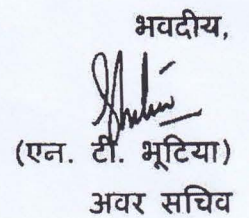 भवदीय,
(एन. टी. भूटिया)
अवर सचिव